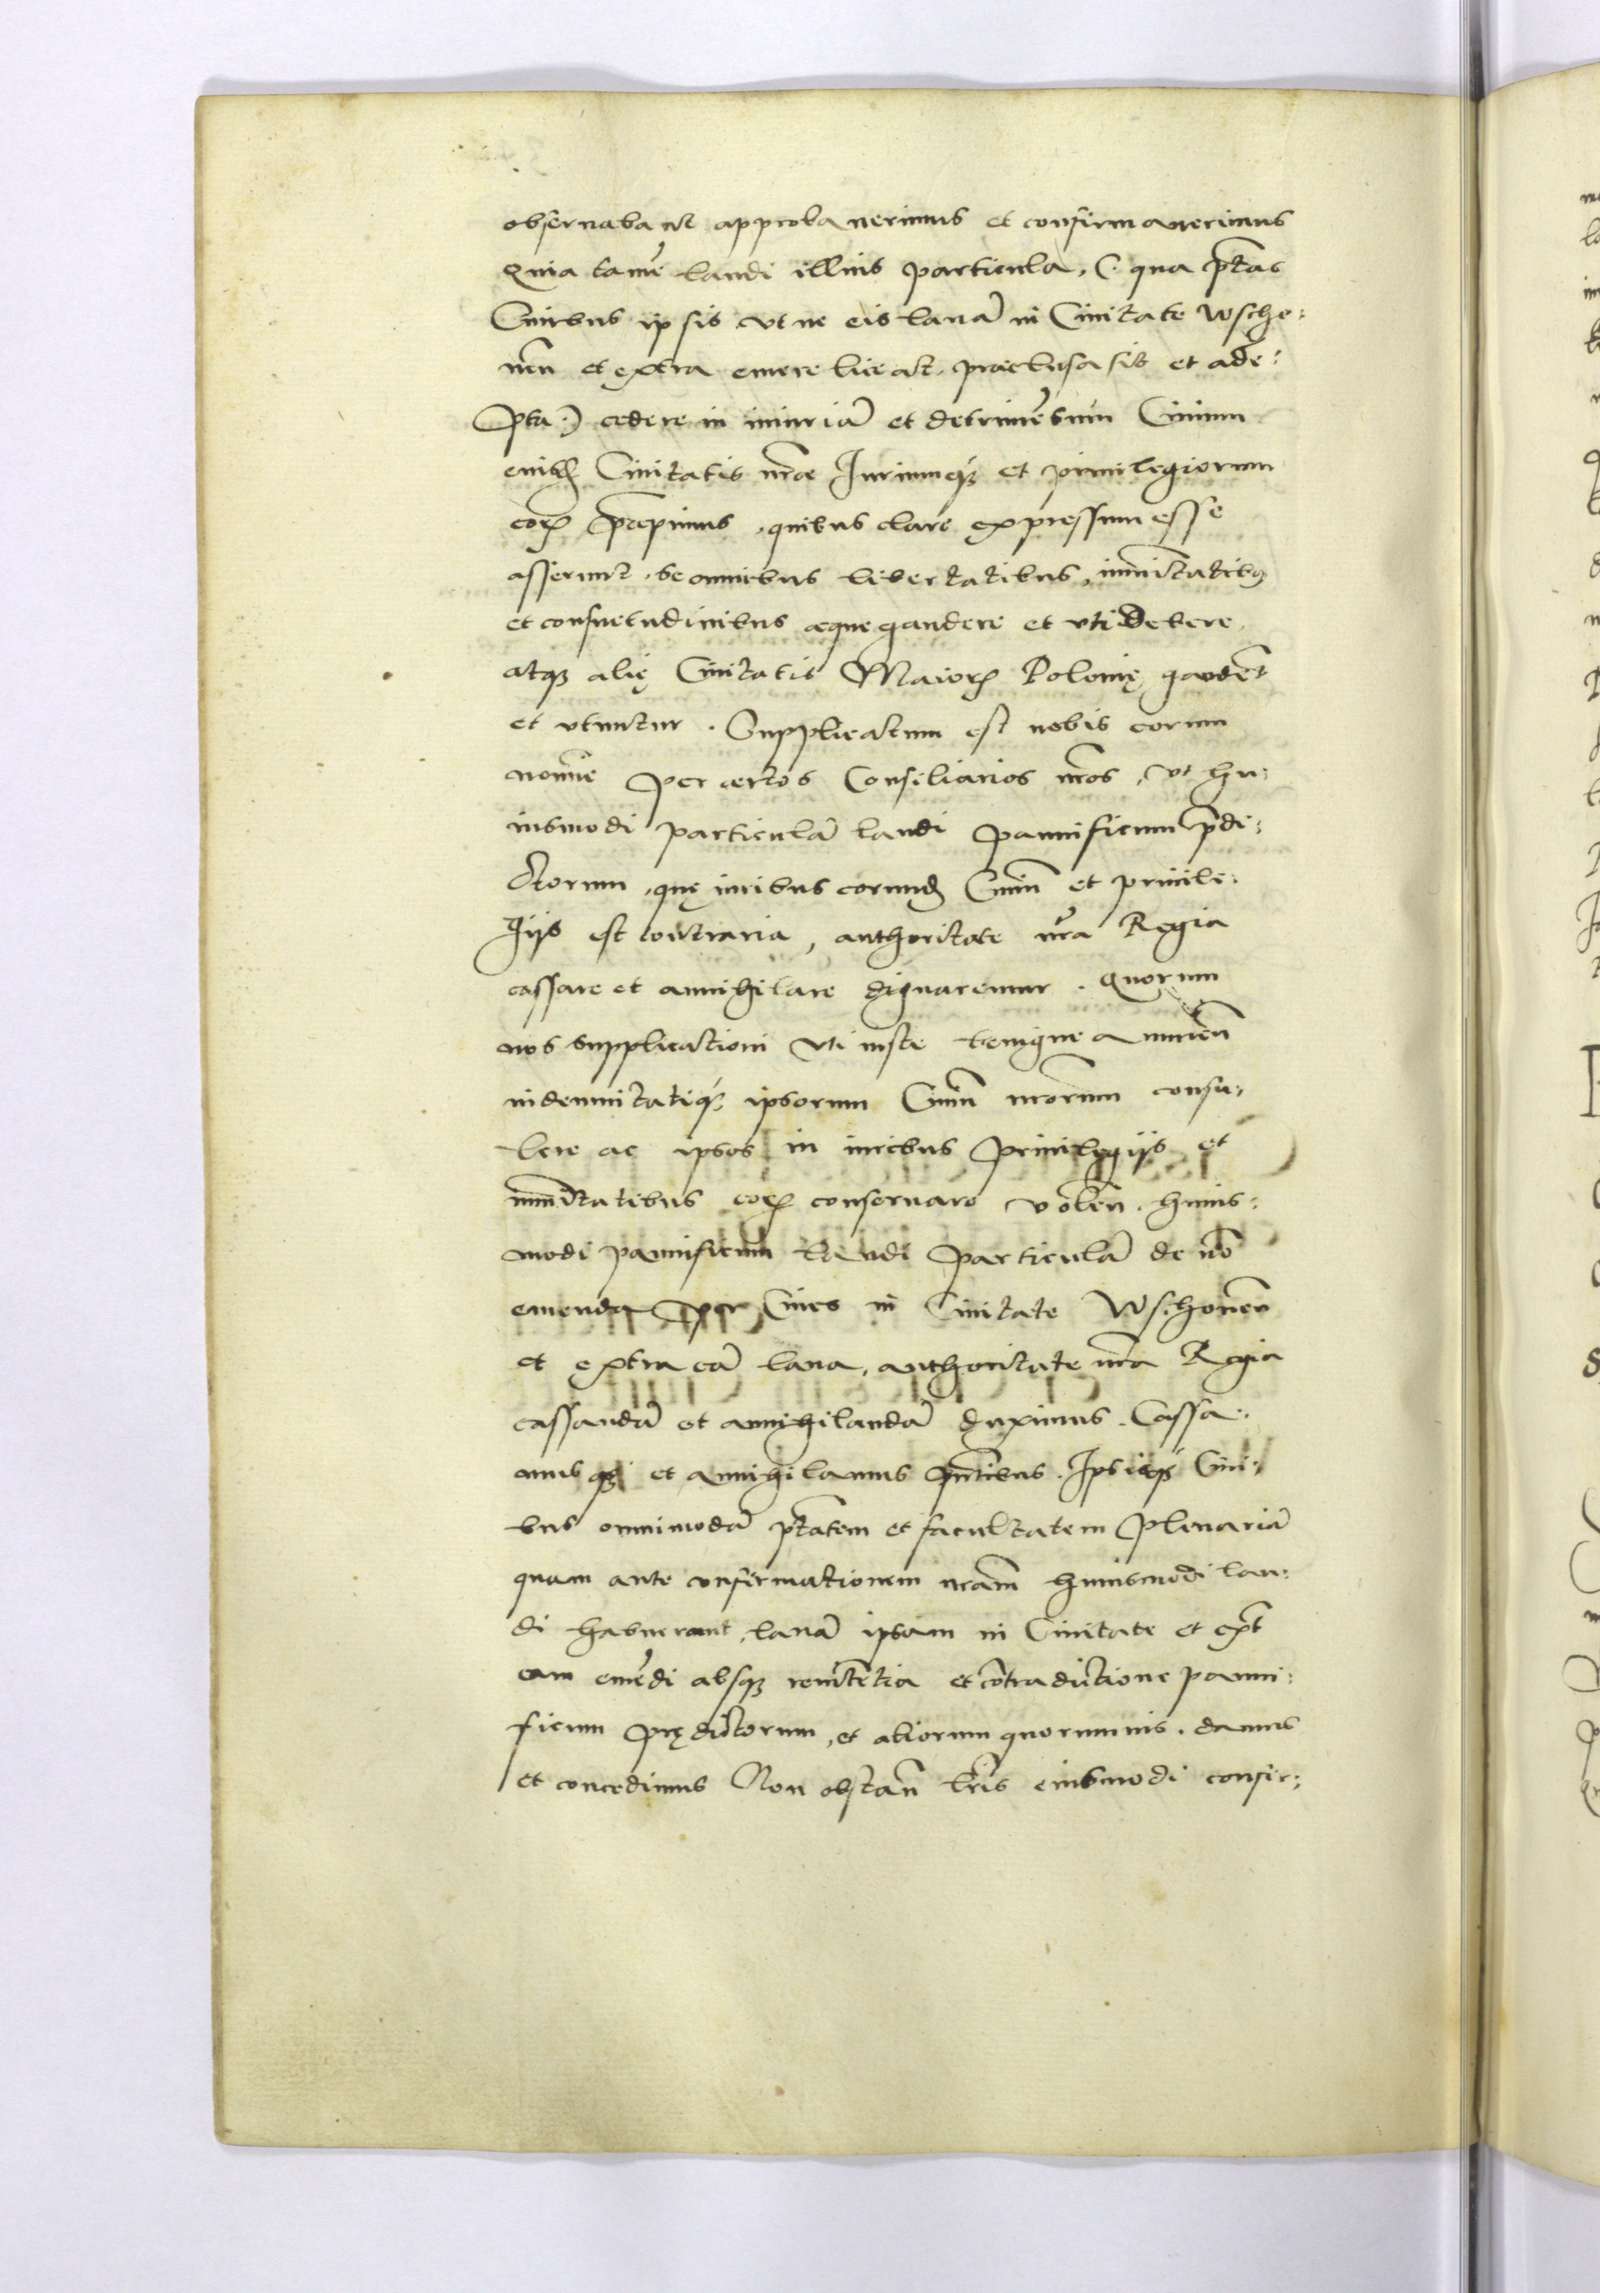 obseruabant approbauerimus et confirmauerimus
Quia tamẽ laudi illius particula, (qua p̃tas
Ciuibus ipsis vt ne eis lanã in Ciuitate Wscho:
ueñ et extra emere liceat, praeclusa sit et ade:
pta:) cedere in iniuriã et detrimẽtum Ciuium
eiusd Ciuitatis nr̃ae Iuriumq₃ et priuilegiorum
eoꝝ p̃cepimus, quibus clare expressum esse
asserunt, se omnibus libertatibus, imũitatibꝯ
et consuetudinibus aeque gaudere et vti debere,
atq₃ alię Ciuitatis Maioꝝ Polonię gaudẽt
et vtuntur. Supplicatum est nobis eorum
noĩe per certos Consiliarios nr̃os, vt hu:
iusmodi particulã laudi pannificum p̃di:
ctorum, quę iuribus eorund Ciuiũ et priuile:
gijs est contraria, authoritate nr̃a Regia
cassare et annihilare dignaremur. Quorum
nos supplicationi vti iuste benigne annueñ
indemnitatiq₃ ipsorum Ciuiũ nr̃orum consu:
lere ac ipsos in iuribus priuilegijs et
imũitatibus eoꝝ conseruare voleñ. huius:
modi pannificum laudi particulã de nõ
emenda per Ciues in Ciuitate Wschoueñ
et extra eã lana, authoritate nr̃a Regia
cassandã et annihilandã duximus. Cassa:
musq₃ et annihilamus p̃ntibus. Ipsisq₃ Ciui:
bus omnimodã p̃tatem et facultatem plenariã
quam ante confirmationem nr̃am huiusmodi lau:
di habuerant, lanã ipsam in Ciuitate et ext̃
eam emẽdi absq₃ renitẽtia et cõtradictione panni:
ficum prędictorum, et aliorum quorumuis. damus
et concedimus Non obstañ lr̃is eiusmodi confir: